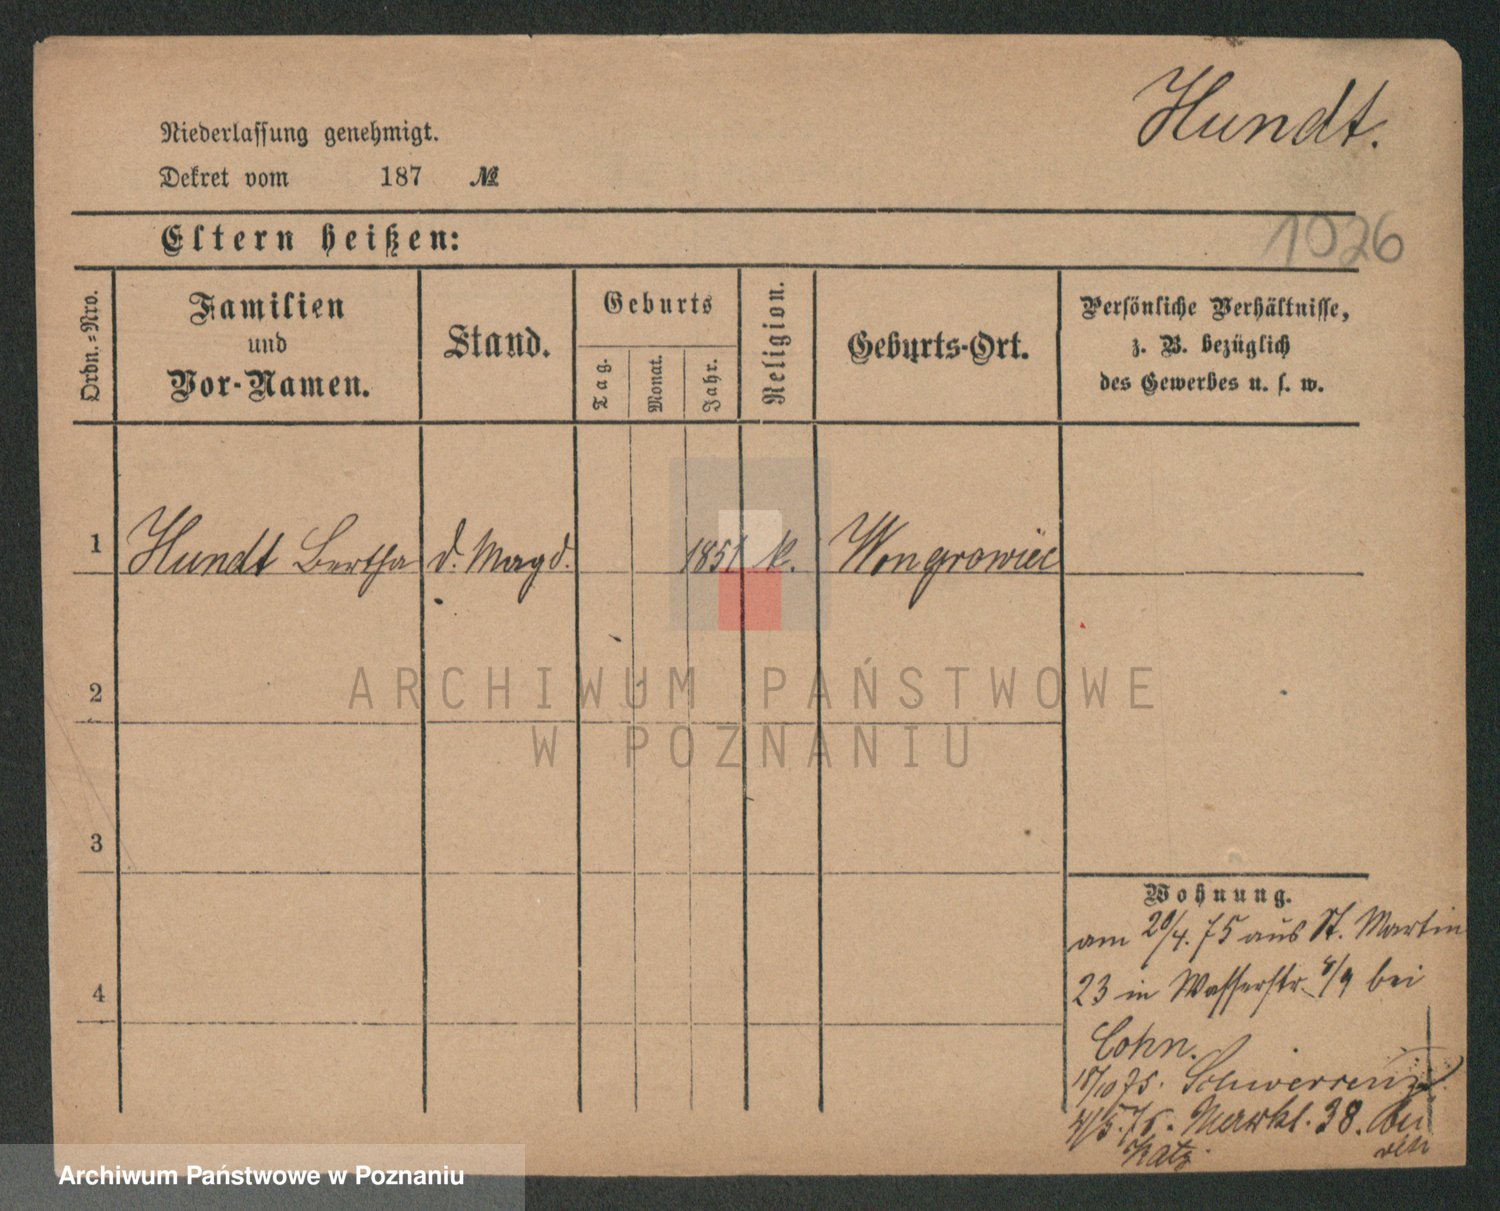 Hundt.
Niederlassung genehmigt.
Dekret vom 187 №
1026
Eltern heißen:
Ordn.-Nro.
Familien
und
Vor-Namen.
Stand.
Geburts
Tag.
Monat.
Jahr.
Religion.
Geburts-Ort.
Persönliche Verhältnisse,
z. B. bezüglich
des Gewerbes u. s. w.
1 Hundt Bertha d. Magd. 1851 k. Wongrowiec
2
ARCHIWUM PAŃSTWOWE
W POZNANIU
3
4
Wohnung.
am 20/4. 75 aus St. Martin
23 in Wasserstr. 8/9 bei
Cohn.
18/10 75. Schwersenz
Markt. 38.
Katz
Archiwum Państwowe w Poznaniu